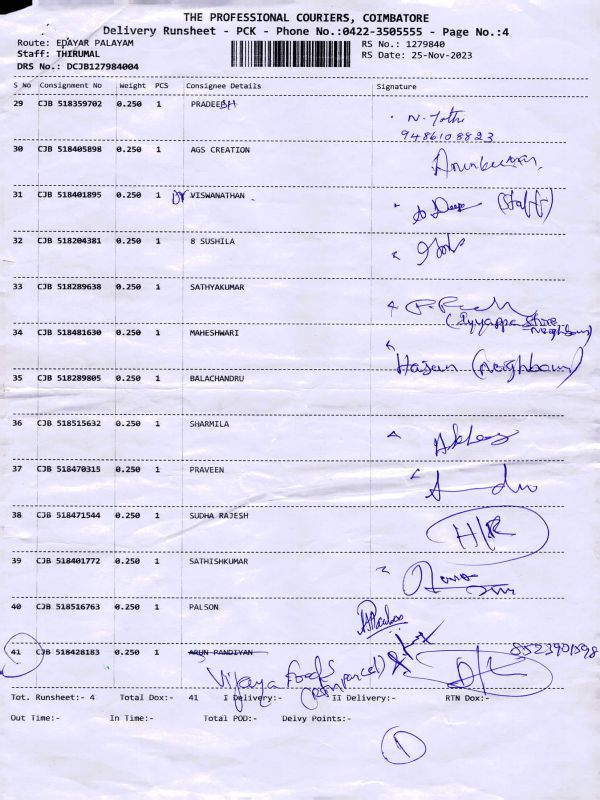 THE PROFESSIONAL COURIERS, COIMBATORE
Delivery Runsheet - PCK - Phone No.:0422-3505555 - Page No.:4
Route: EDAYAR PALAYAM RS No.: 1279840
Staff: THIRUMAL RS Date: 25-Nov-2023
DRS No.: DCJB127984004
S No Consignment No Weight PCS Consignee Details Signature
29 CJB 518359702 0.250 1 PRADEESH
9486108823
30 CJB 518405898 0.250 1 AGS CREATION
Arunkumar
31 CJB 518401895 0.250 1 Dr VISWANATHAN
(Staff)
32 CJB 518204381 0.250 1 B SUSHILA
33 CJB 518289638 0.250 1 SATHYAKUMAR
(Iyyappa Store
Neighbour)
34 CJB 518481630 0.250 1 MAHESHWARI
Hasan (Neighbour)
35 CJB 518289805 0.250 1 BALACHANDRU
36 CJB 518515632 0.250 1 SHARMILA
37 CJB 518470315 0.250 1 PRAVEEN
38 CJB 518471544 0.250 1 SUDHA RAJESH
H/R
39 CJB 518401772 0.250 1 SATHISHKUMAR
40 CJB 518516763 0.250 1 PALSON
41 CJB 518428183 0.250 1 ARUN PANDIYAN
8523901598
Vijaya Foods
Tot. Runsheet:- 4 Total Dox:- 41 I Delivery:- II Delivery:- RTN Dox:-
Out Time:- In Time:- Total POD:- Deivy Points:-
1